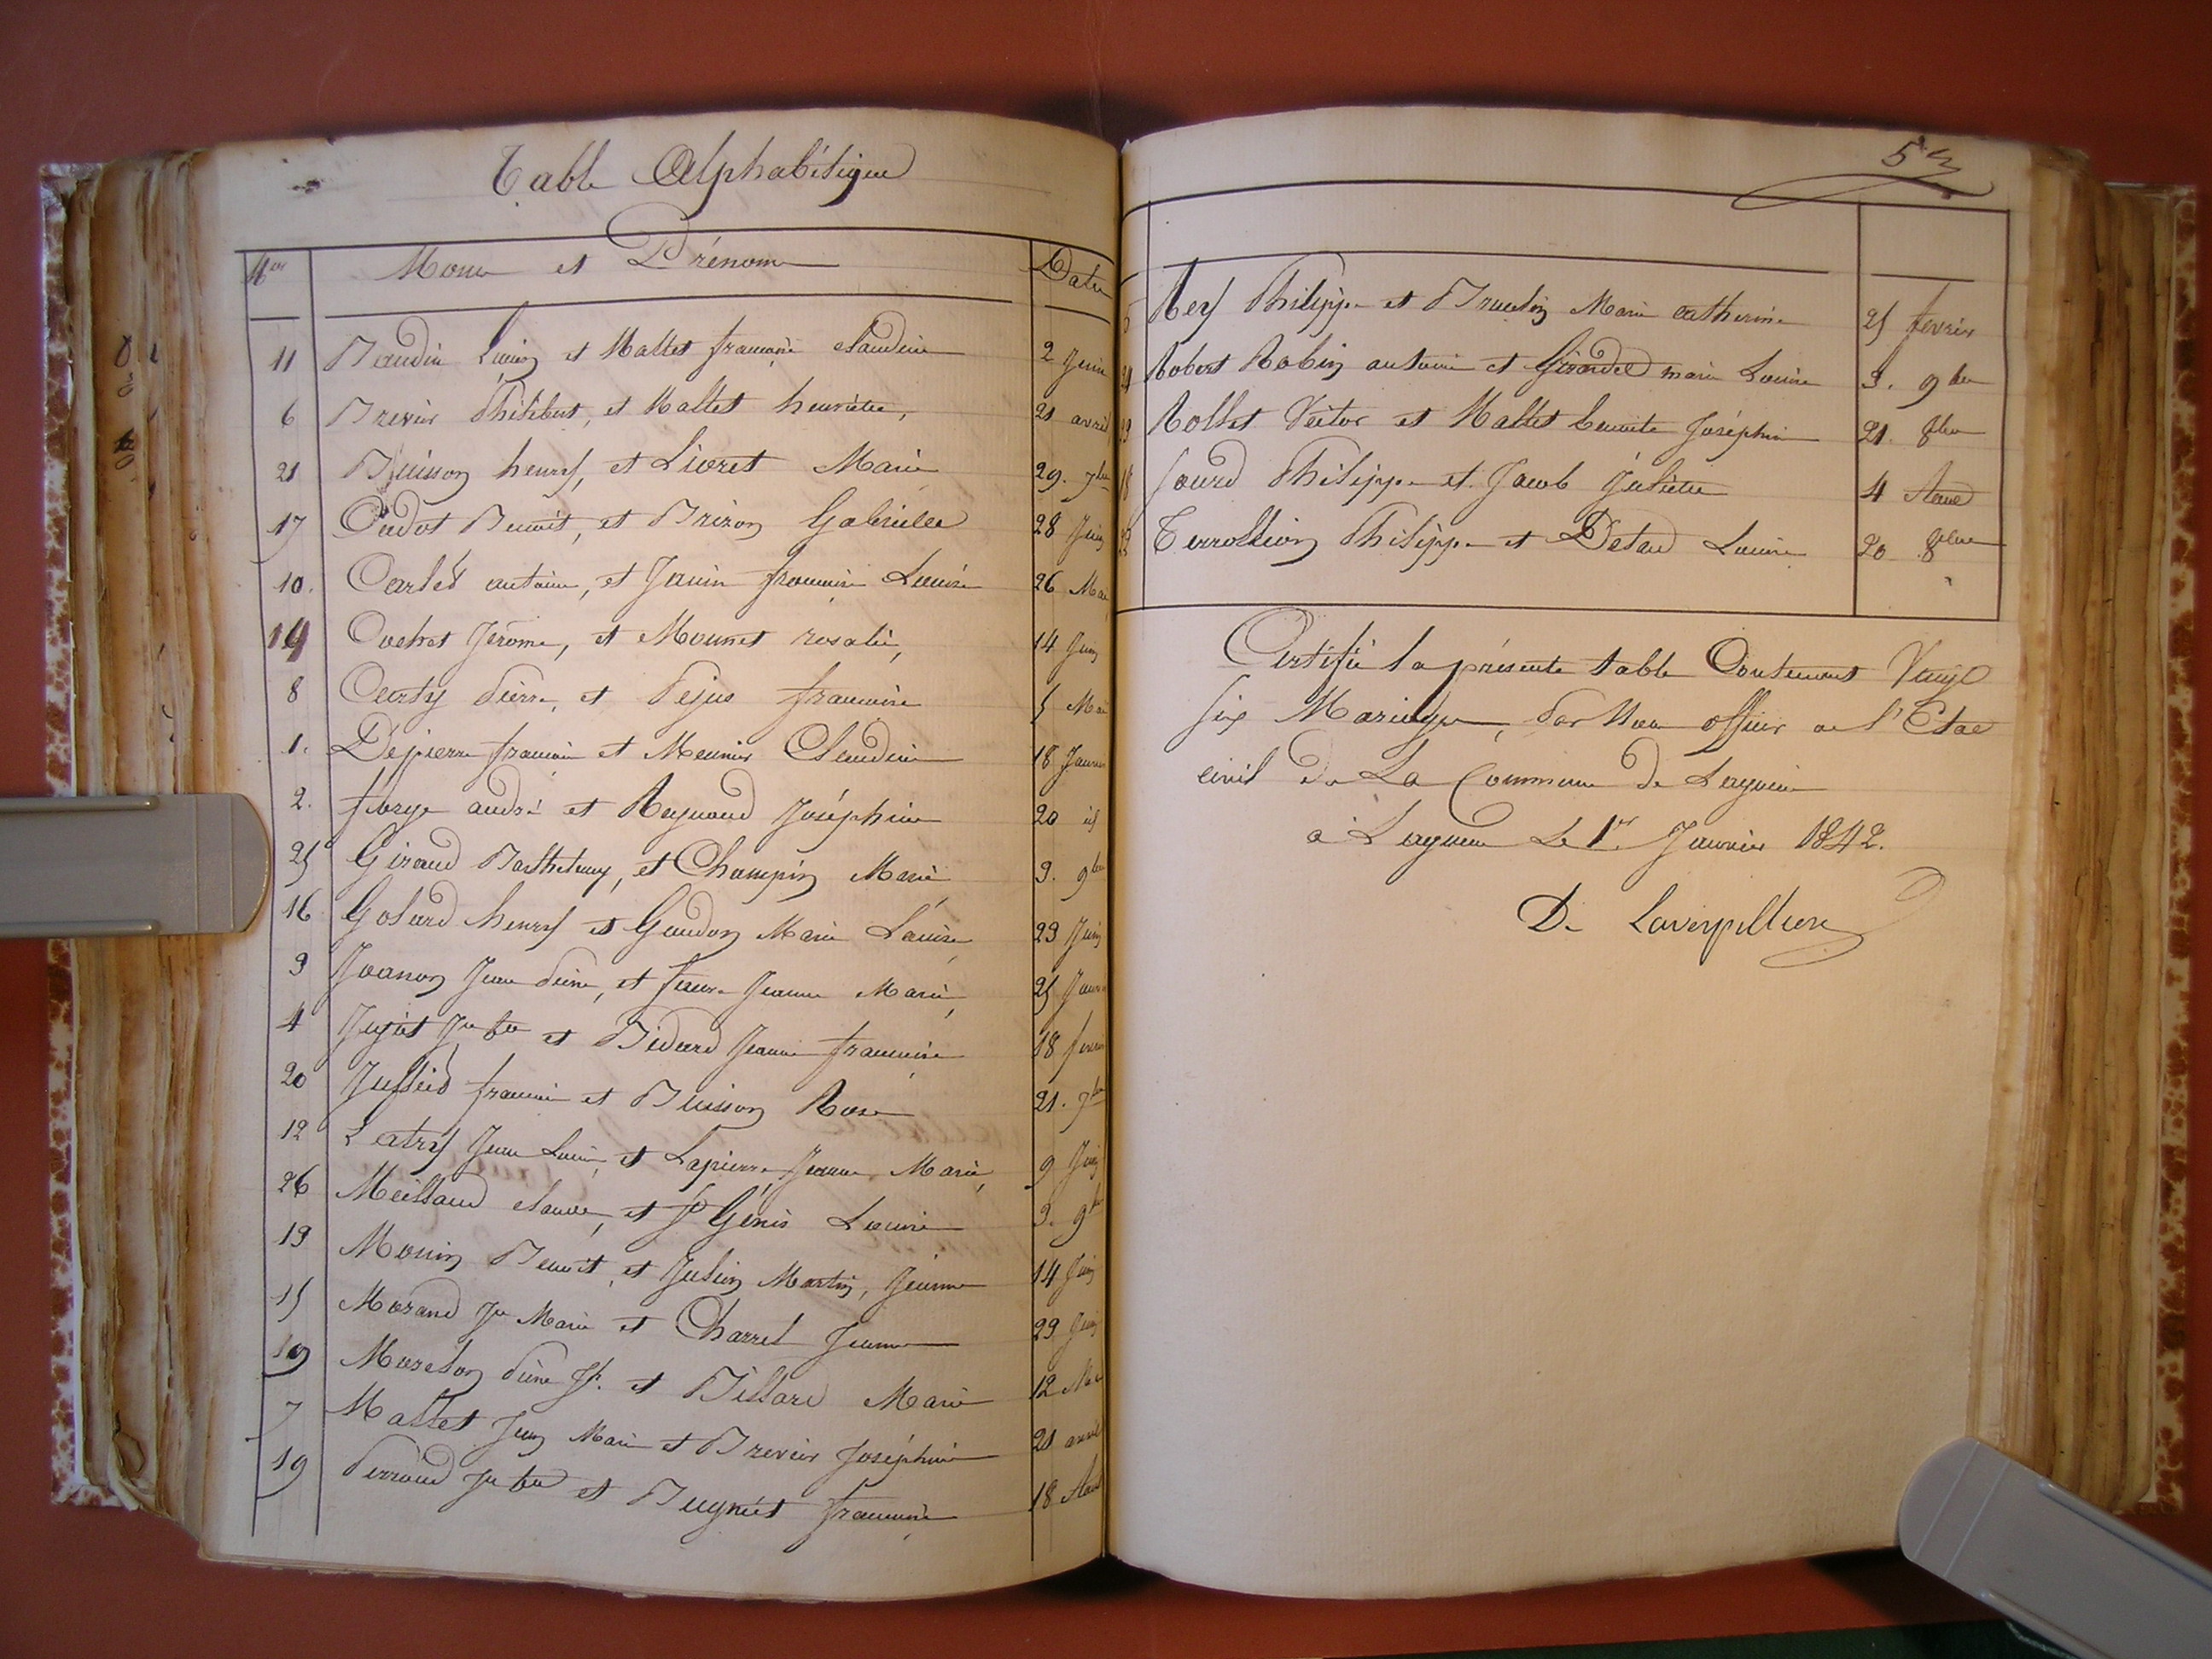 Table Alphabétique
Nos Noms et Prénoms Dates
11 Baudin Louis et Mallet françoise claudine 2 Juin
6 Brevier Philibert, et Mallet henriette, 21 avril
21 Buisson henry, et Livret Marie 29. 7bre
17 Cadot Benoit, et Brizon Gabrielle 28 Juin
10. Carled antoine, et Janin françoise Louise 26 Mai
14 Cochet Jérome, et Mounet rosalie, 14 Juin
8 Curty Pierre, et Pejus françoise 5 Mai
1. Depierre françois et Meunier Claudine 18 Janvier
2. forge andré et Reynaud Joséphine 20 id
25 Giraud Barthelemy, et Champin Marie 3. 9bre
16 Golard henry et Gaudon Marie Louise 23 Juin
3 Joanon Jean Pierre, et faure Jeanne Marie 25 Janvier
4 Jujat Jn Bte et Bidard Jeanne françoise 18 fevrier
20 Jullied françois et Buisson Rose 21. 7bre
12 Leatry Jean Louis et Lapierre Jeanne Marie, 9 Juin
26 Meillaud claude, et St Génis Louise 3. 9bre
13 Monin Benoit, et Julien Martin, Jeanne 14 Juin
15 Morand Jn Marie et Charrel Jeanne 23 Juin
19 Morelon Pierre Jh. et Billard Marie 12
7 Mallet Jean Marie et Brevier Joséphine 21 avril
19 Perraud Jn Bte et Bugniet françoise 18 Aout
5
Rey Philippe et Braulin Marie catherine 25 fevrier
24 Robert Robin antoine et Girardel marie Louise 3. 9bre
23 Rollet Victor et Mallet benoite Joséphine 21. 8bre
18 Sourd Philippe et Jacob Juliette 4 Aout
22 Terrollion Philippe et Detard Louise 20 8bre
Certifié la présente table Contenant Vingt
Six Mariages, par Nous officier de l'Etat
civil de La Commune de Lagnieu
à Lagnieu Le 1er Janvier 1842.
De Laverpilliere